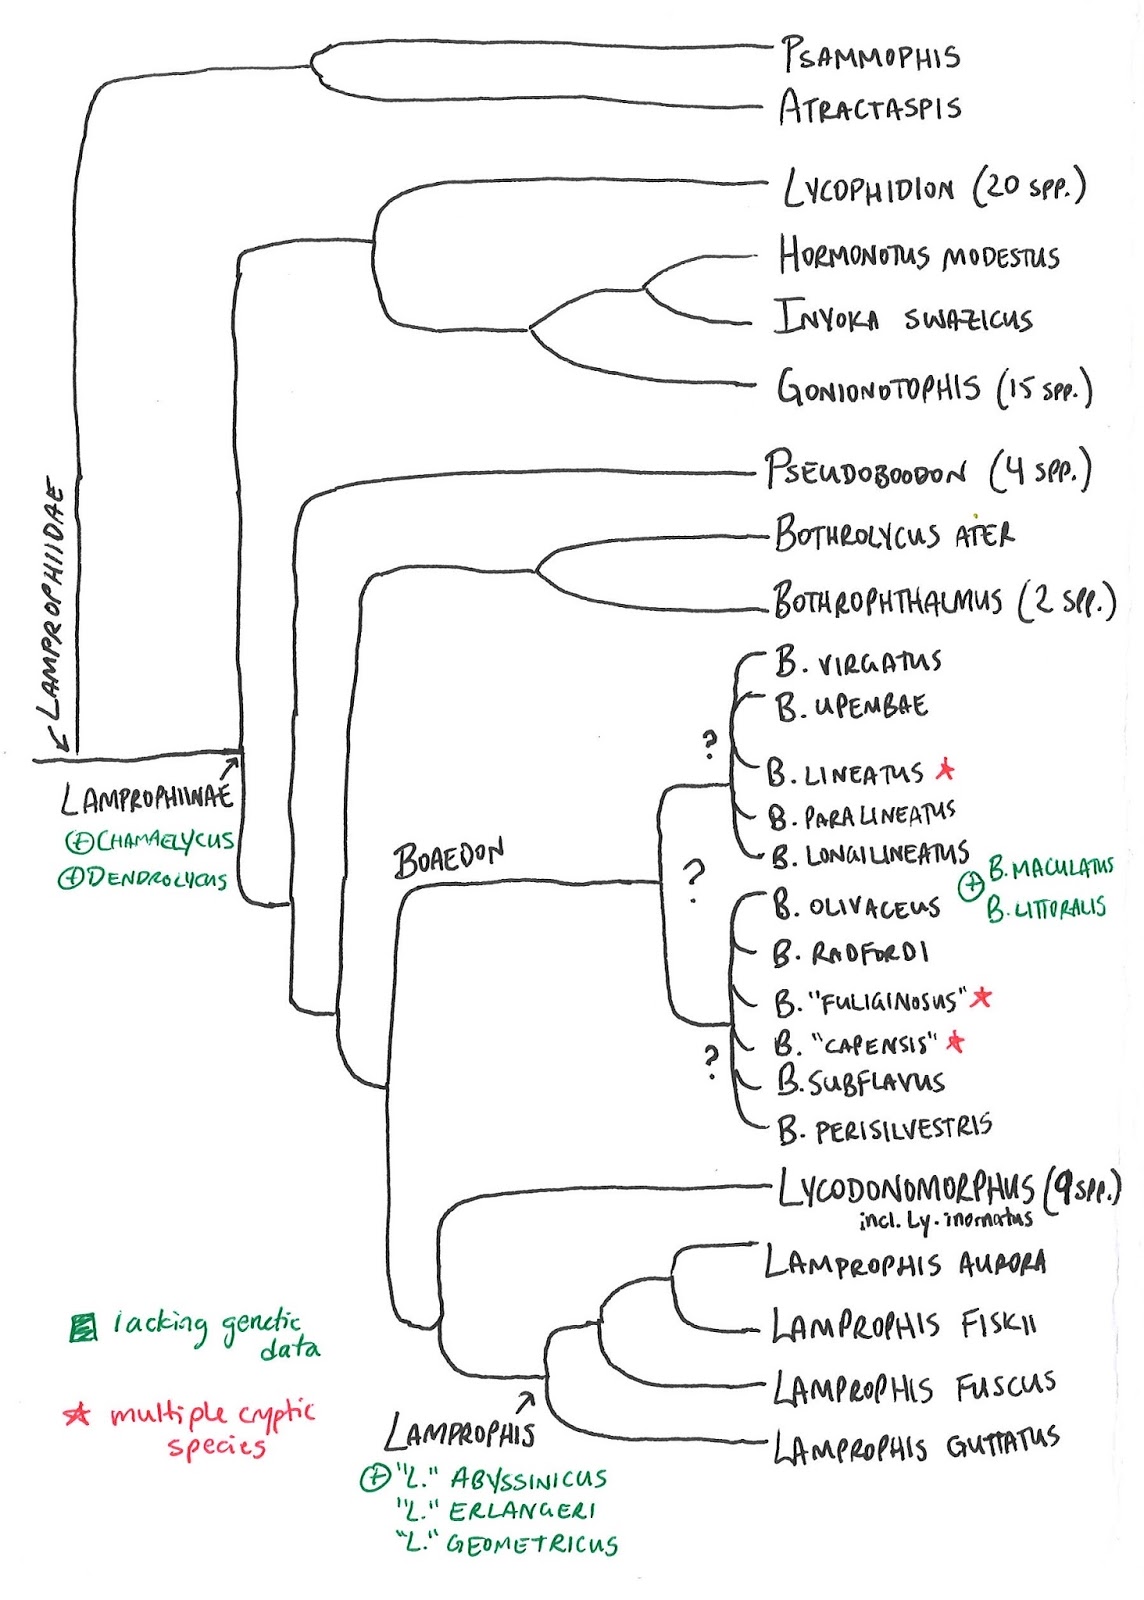 PSAMMOPHIS
ATRACTASPIS
LYCOPHIDION (20 SPP.)
HORMONOTUS MODESTUS
INYOKA SWAZICUS
GONIONOTOPHIS (15 SPP.)
PSEUDOBOODON (4 SPP.)
BOTHROLYCUS ATER
BOTHROPHTHALMUS (2 SPP.)
LAMPROPHIIDAE
LAMPROPHIINAE
+ CHAMAELYCUS
+ DENDROLYCUS
BOAEDON
?
?
?
B. VIRGATUS
B. UPEMBAE
B. LINEATUS ★
B. PARALINEATUS
B. LONGILINEATUS
+ B. MACULATUS
B. LITTORALIS
B. OLIVACEUS
B. RADFORDI
B. "FULIGINOSUS" ★
B. "CAPENSIS" ★
B. SUBFLAVUS
B. PERISILVESTRIS
LYCODONOMORPHUS (9 SPP.)
incl. Ly. inornatus
LAMPROPHIS AURORA
LAMPROPHIS FISKII
LAMPROPHIS FUSCUS
LAMPROPHIS GUTTATUS
LAMPROPHIS
+ "L." ABYSSINICUS
"L." ERLANGERI
"L." GEOMETRICUS
lacking genetic
data
★ multiple cryptic
species